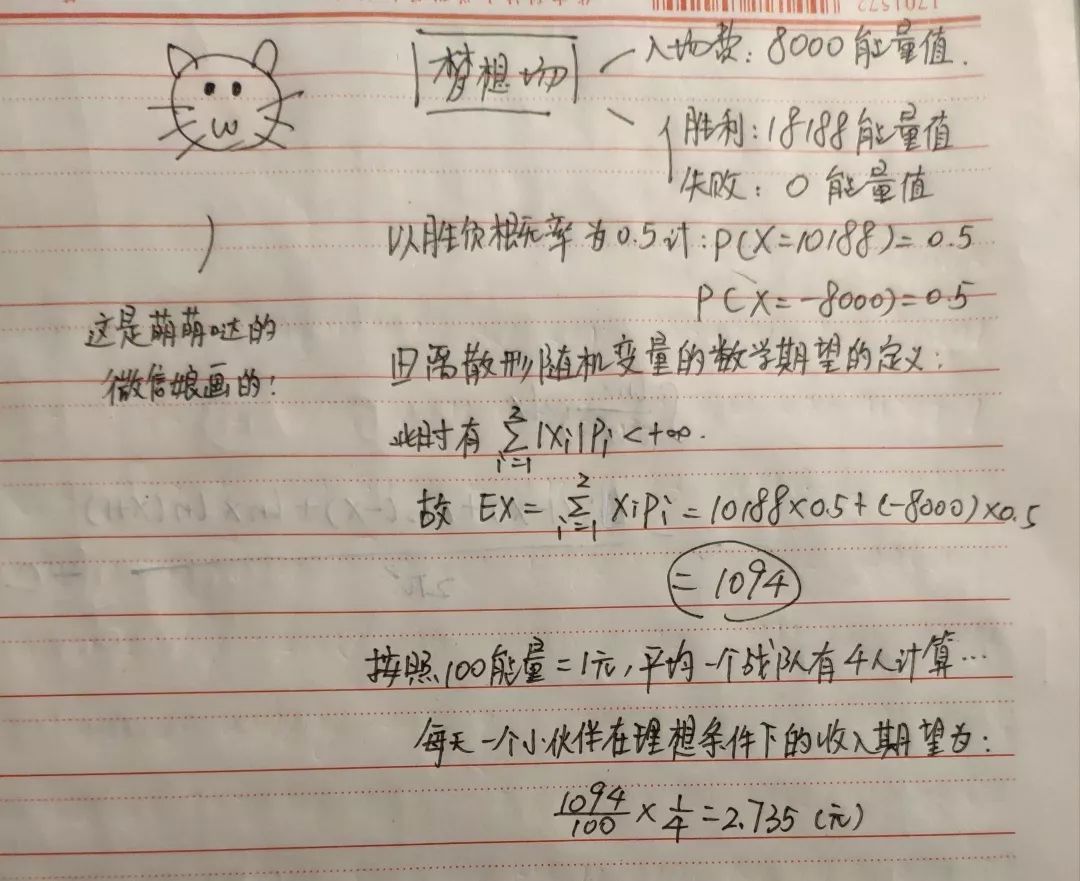 梦想场
入场费：8000能量值．
胜利：18188能量值
失败：0能量值
以胜负概率为0.5计：P(X=10188)=0.5
P(X=-8000)=0.5
这是萌萌哒的
微信娘画的！
由离散形随机变量的数学期望的定义：
此时有 \sum_{i=1}^{2}|Xi|Pi<+∞．
故 EX=\sum_{i=1}^{2}XiPi=10188×0.5+(-8000)×0.5
=1094
按照100能量=1元，平均一个战队有4人计算…
每天一个小伙伴在理想条件下的收入期望为：
\frac{1094}{100}×\frac{1}{4}=2.735（元）